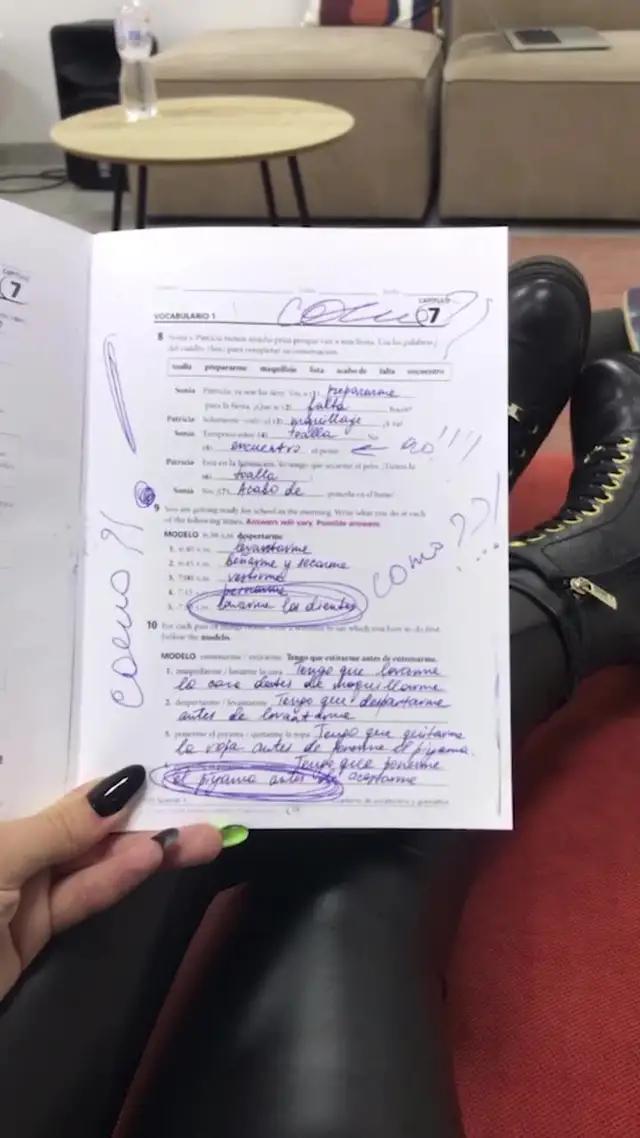 CAPÍTULO
7
CAPÍTULO
como?
7
VOCABULARIO 1
8 Sonia y Patricia tienen mucha prisa porque van a una fiesta. Usa las palabras
del cuadro para completar su conversación.
toalla prepararme maquillaje lista acabo de falta encuentro
Sonia Patricia, ya son las siete. Voy a (1) prepararme
para la fiesta. ¿Qué te (2) falta hacer?
Patricia Solamente (3) maquillaje ¿Y tú?
Sonia (4) toalla No
(5) encuentro el peine. ← eso!!!!
Patricia Está en la
(6) toalla
Sonia (7) Acabo de ponerla en el baño.
9 You are getting ready for school in the morning. Write what you do at each
of the following times. Answers will vary. Possible answers:
MODELO 6:30 A.M. despertarme
1. 6:40 A.M. levantarme
2. 6:45 A.M. benarme y secarme
3. 7:00 A.M. vestirme
4. 7:15 peinarme
5. lavarme los dientes
como??!
...
como?!
10 For each pair of to say which you have to do first.
Follow the modelo.
MODELO entrenarme / estirarme Tengo que estirarme antes de entrenarme.
1. maquillarme / lavarme la cara Tengo que lavarme
la cara antes de maquillarme
2. despertarme / levantarme Tengo que despertarme
antes de levantarme
3. ponerme el piyama / quitarme la ropa Tengo que quitarme
la ropa antes de ponerme el piyama.
Tengo que ponerme
el piyama antes de acostarme
Cuaderno de vocabulario y gramática